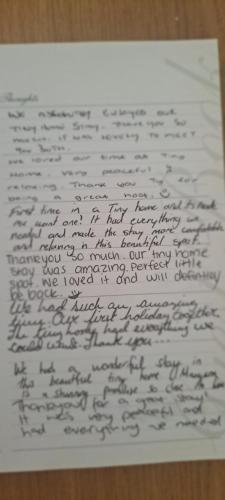 Thoughts
We absolutely enjoyed our
Tiny home stay. Thank you so
much. It was lovely to meet
you both.
We loved our time at Tiny
Home. Very peaceful &
relaxing. Thank you for
being a great host ☺
First time in a Tiny home and
want one! It had everything we
needed and made the stay more comfortable
and relaxing in this beautiful spot.
Thankyou so much. Our tiny home
stay was amazing. Perfect little
spot. We loved it and will definitley
be back.
We had such an amazing
time. Our first holiday together,
the tiny home had everything we
could want. Thank you...
We had a wonderful stay in
this beautiful tiny home
is a stunning paradise so close to
Thankyou for a great stay!
It was very peaceful and
had everything we needed